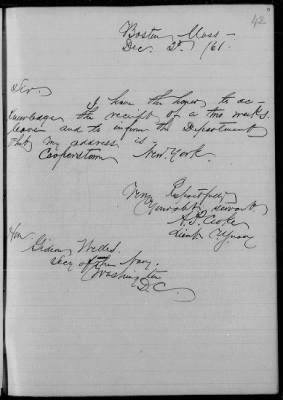 42
Boston, Mass -
Dec. 2d /61.
Sir
I have the honor to ac
knowledge the receipt of a two weeks
leave and to inform the Department
that my address is
Cooperstown New York.
Very Respectfully
Your obt servant
A. P. Cooke
Lieut. U.S.
Hon
Gideon Welles.
Secy of the Navy.
Washington
D.C.